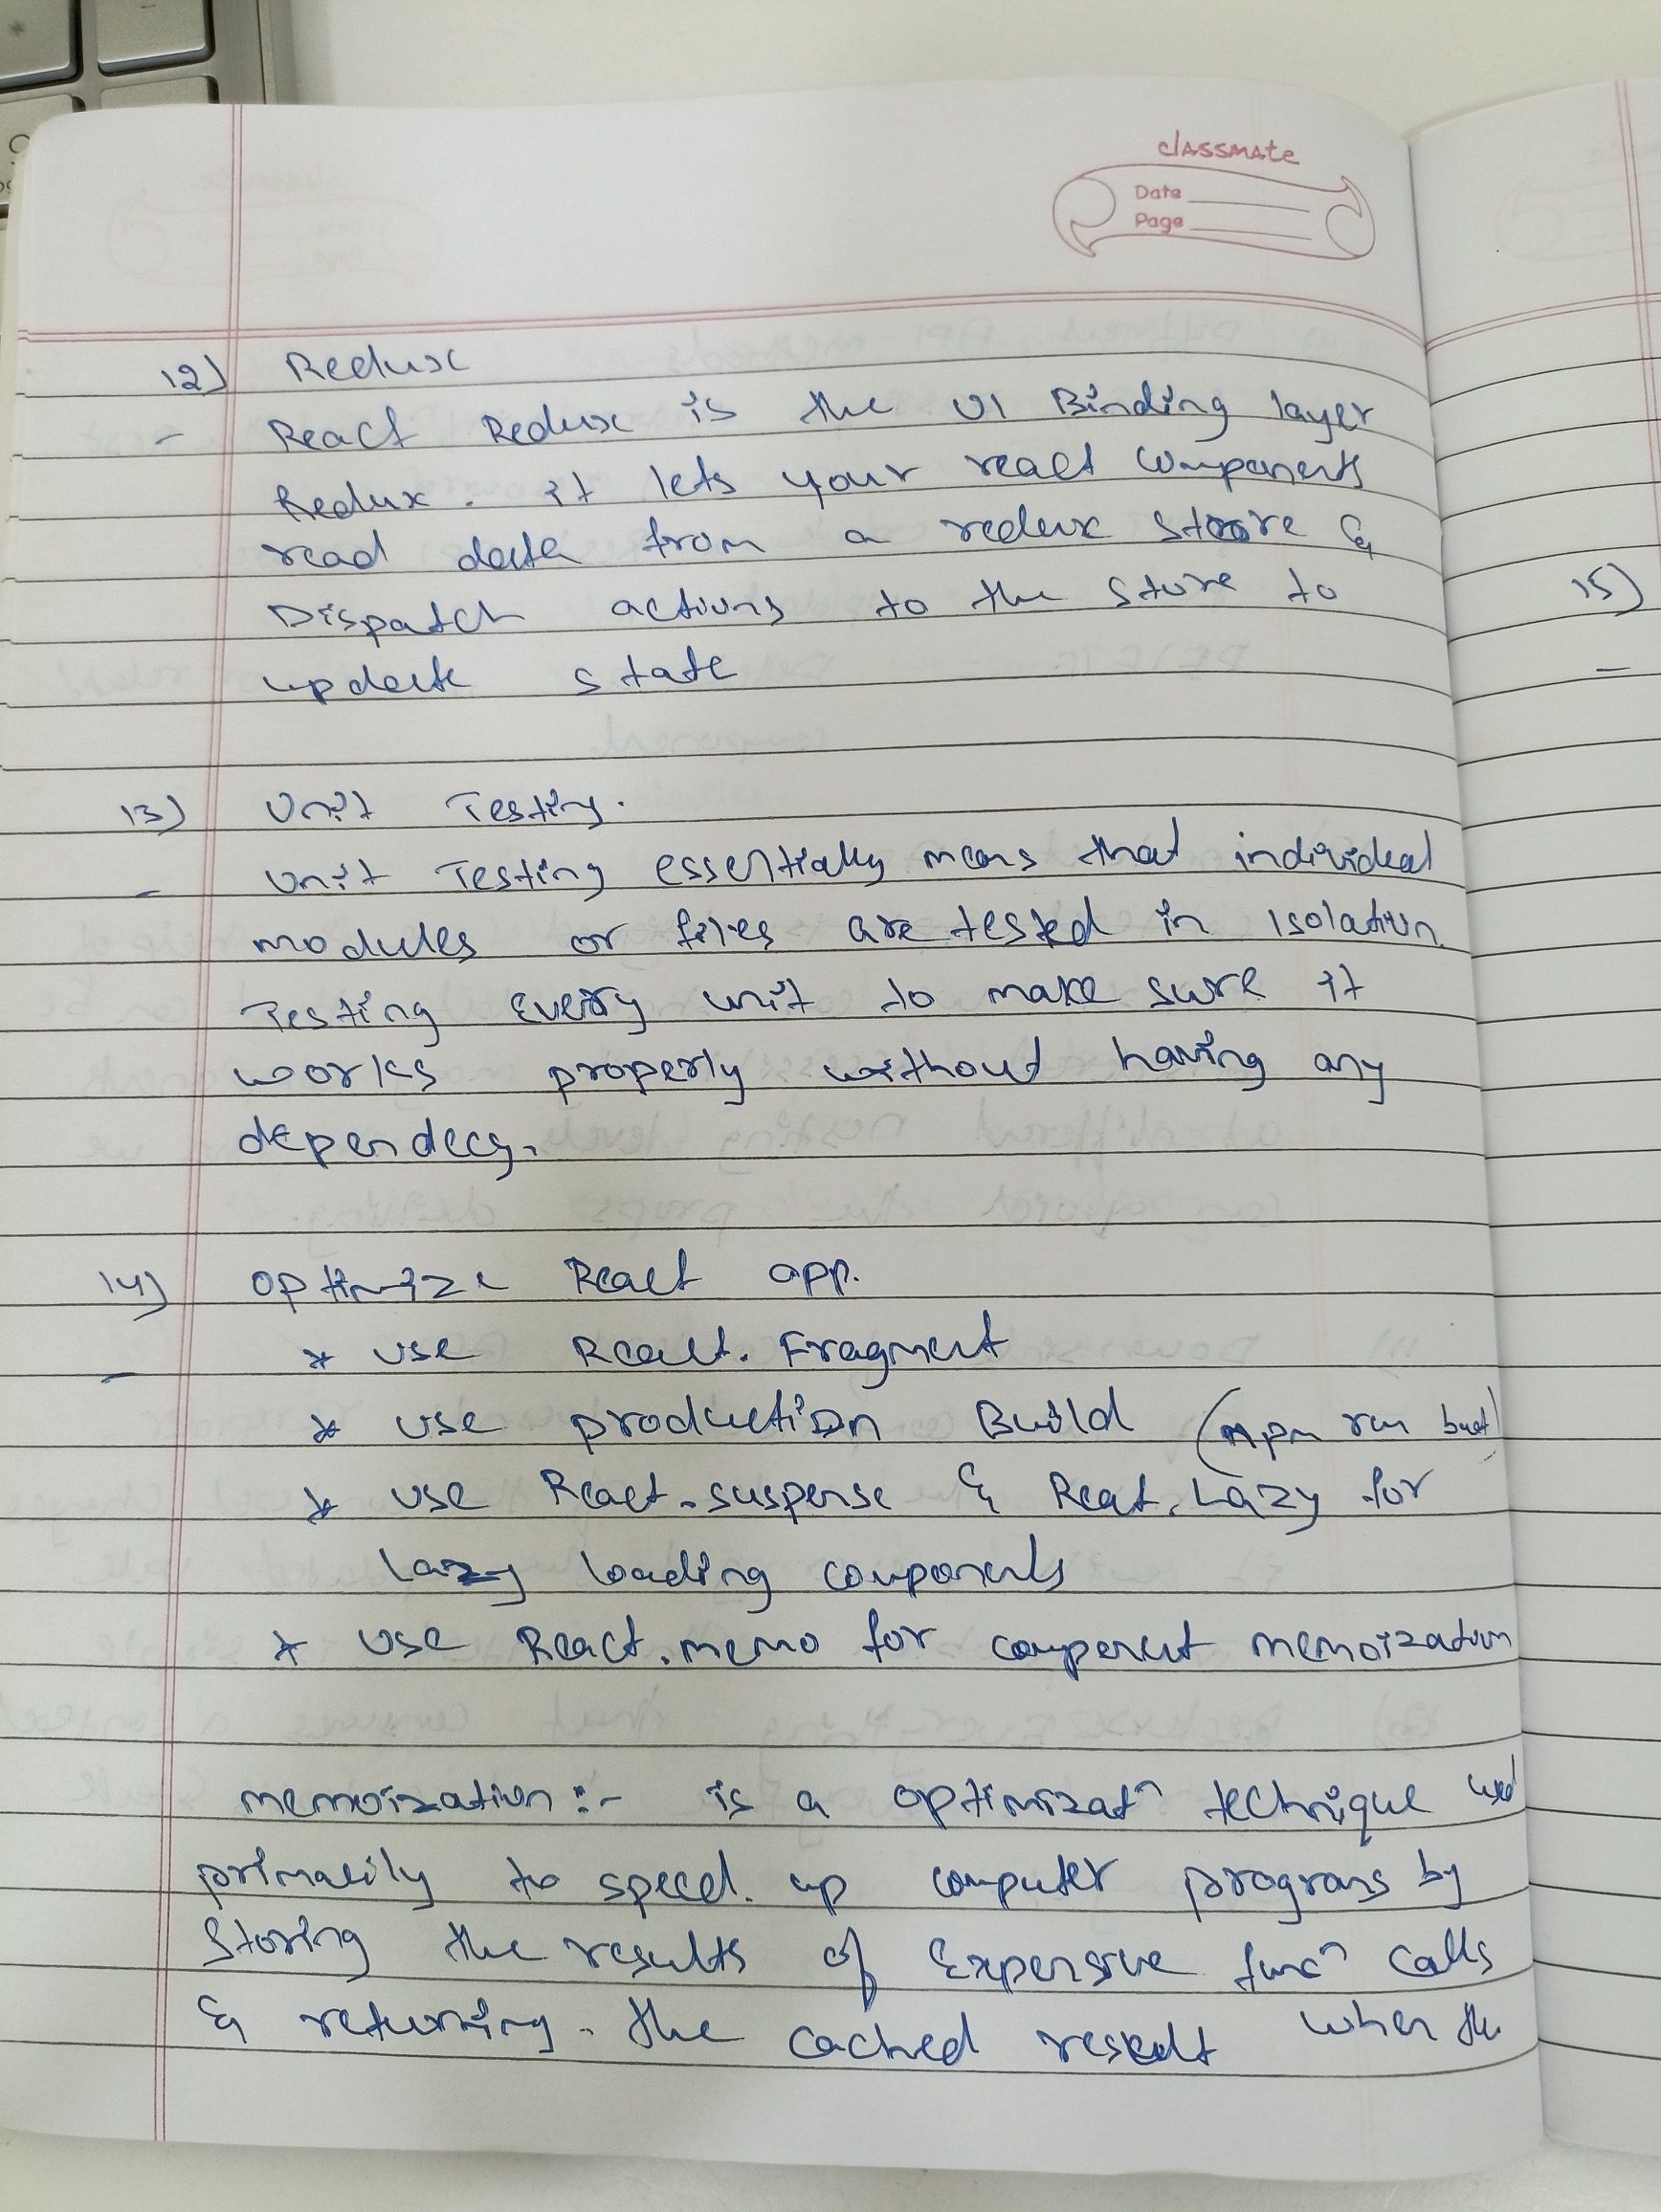 classmate
Date
Page
12) Redux
- React Redux is the UI Binding layer
Redux. it lets your react components
read data from a redux store &
Dispatch actions to the store to
update state
13) Unit Testing.
- Unit Testing essentially means that individual
modules or files are tested in Isolation.
Testing every unit to make sure it
works properly without having any
dependecy.
14) Optimize React app.
- * use React. Fragment
* use production Build (npm run
* use React.suspense & Reat.Lazy for
Lazy loading components
* use React.memo for component memoization
memoization :- is a optimizatⁿ technique used
primarily to speed. up computer programs by
Storing the results of Expensive funcⁿ calls
& returning. the cached result when the
15)
-